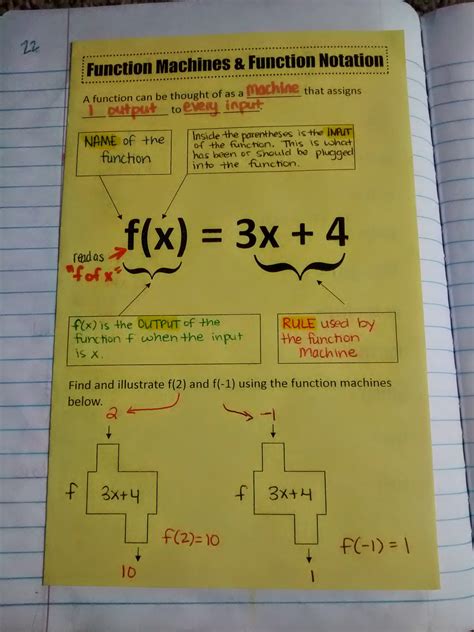 22
Function Machines & Function Notation
A function can be thought of as a machine that assigns
1 output to every input.
NAME of the
function
Inside the parentheses is the INPUT
of the function. This is what
has been or should be plugged
into the function.
f(x) = 3x + 4
read as
"f of x"
f(x) is the OUTPUT of the
function f when the input
is x.
RULE used by
the function
Machine
Find and illustrate f(2) and f(-1) using the function machines
below.
2
-1
f
3x+4
f
3x+4
f(2)=10
f(-1)=1
10
1